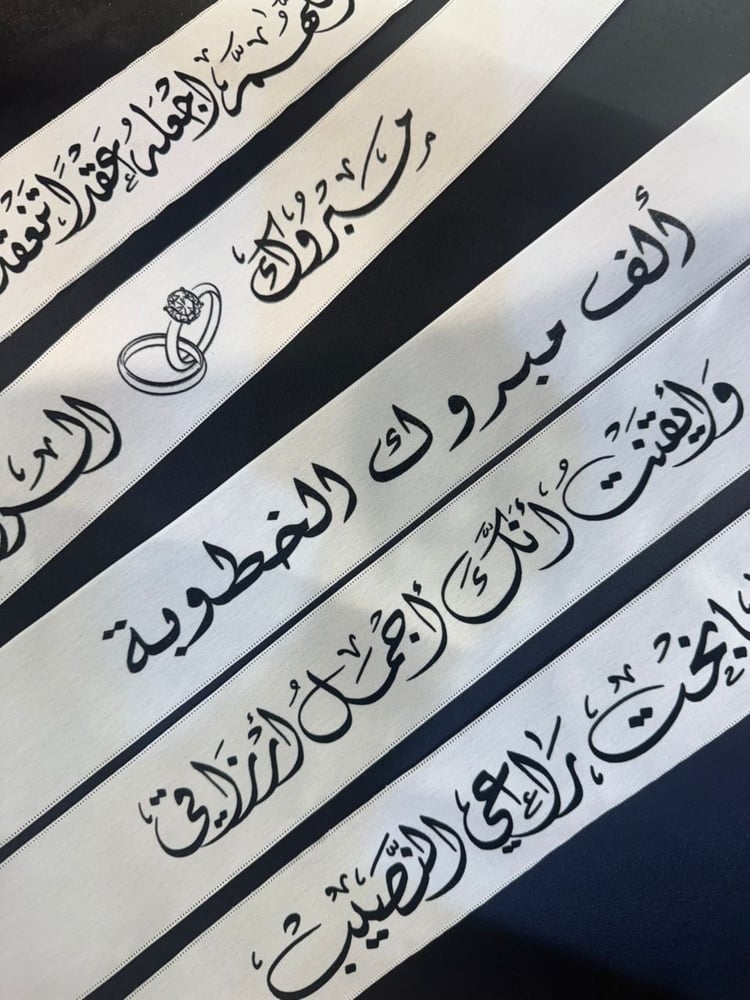 اللهمّ اجعله عقداً تنعقد
مبروك
ألف مبروك الخطوبة
وأيقنت أنّك أجمل أرزاقي
يا بخت راعي النّصيب